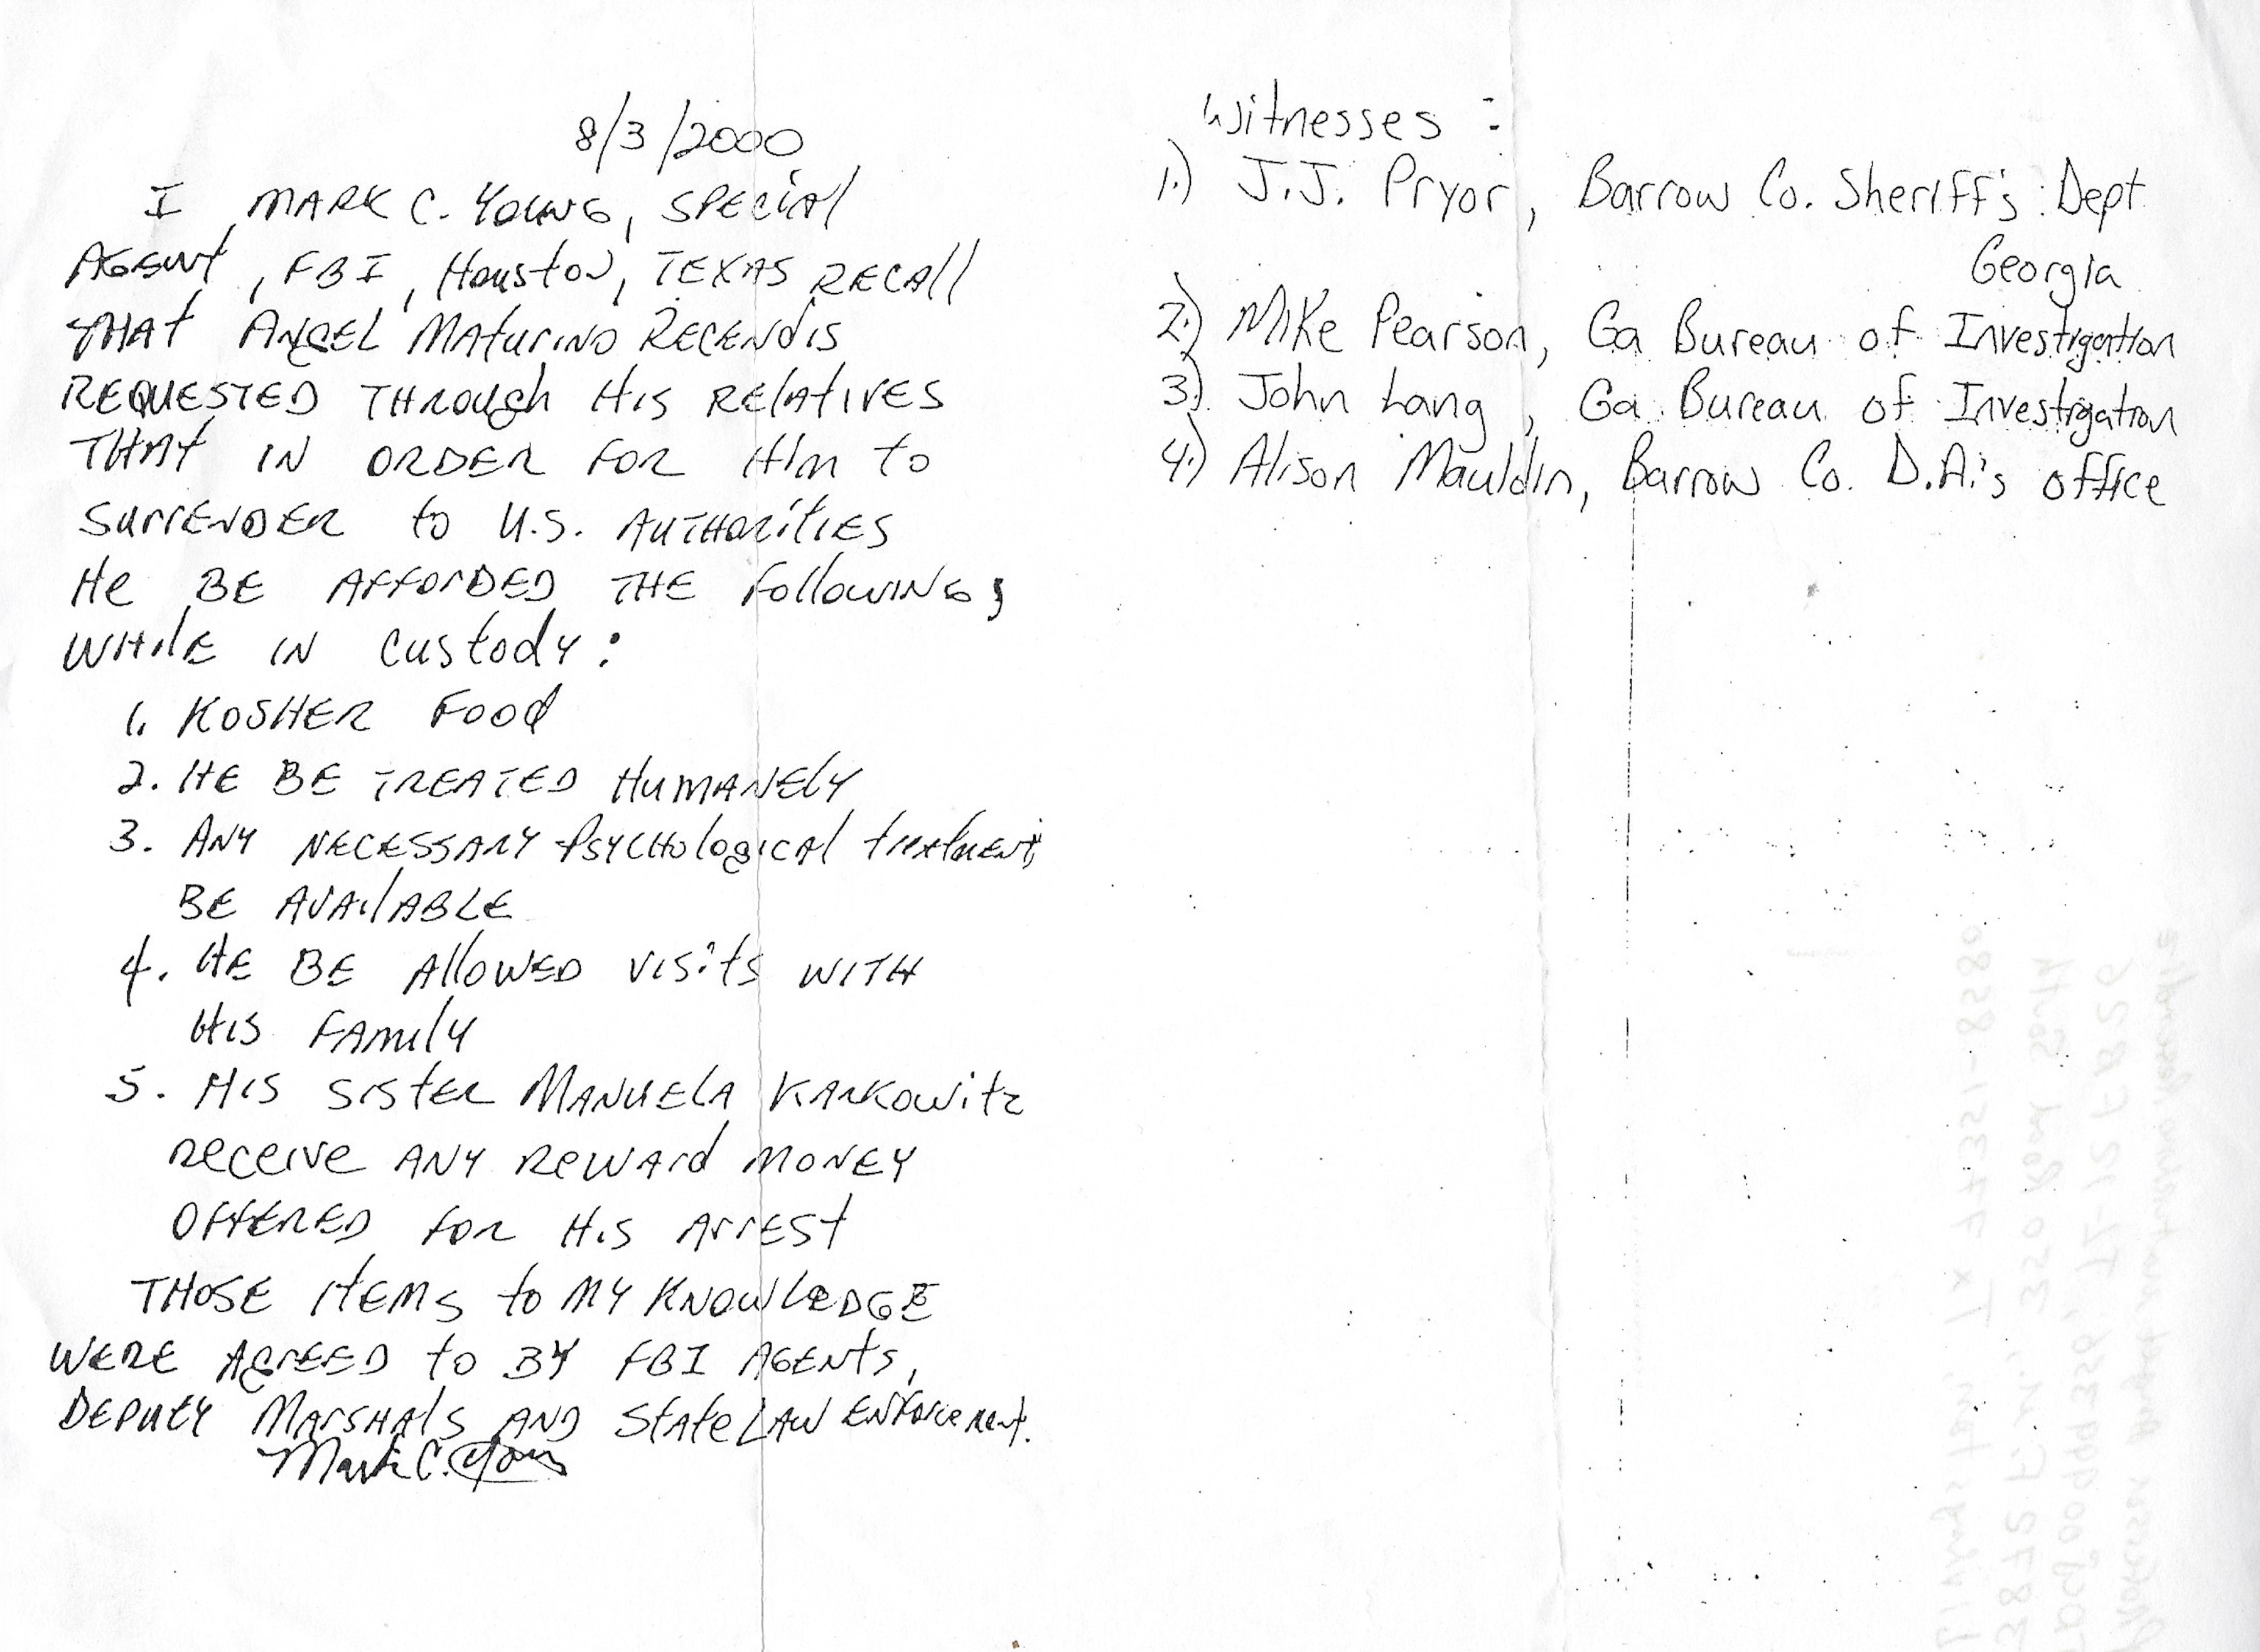 8/3/2000
I, MARK C. YOUNG, SPECIAL
AGENT, FBI, Houston, TEXAS RECALL
THAT ANGEL MATURINO RECENDIS
REQUESTED THROUGH HIS RELATIVES
THAT IN ORDER FOR HIM to
SURRENDER to U.S. AUTHORITIES
He BE AFFORDED THE Following,
WHILE IN custody:
1. KOSHER FOOD
2. HE BE TREATED HUMANELY
3. ANY NECESSARY PSYCHOLOGICAL treatment
BE AVAILABLE
4. HE BE ALLOWED VISITS WITH
HIS FAMILY
5. HIS SISTER MANUELA KARKOWITZ
Receive ANY REWARD MONEY
OFFERED FOR HIS ARREST
THOSE ITEMS to MY KNOWLEDGE
WERE AGREED to BY FBI AGENTS,
DEPUTY MARSHALS AND STATE LAW ENFORCEMENT.
Mark C. Young
Witnesses:
1.) J.J. Pryor, Barrow Co. Sheriff's Dept
Georgia
2.) Mike Pearson, Ga Bureau of Investigation
3.) John Lang, Ga. Bureau of Investigation
4.) Alison Mauldin, Barrow Co. D.A.'s office